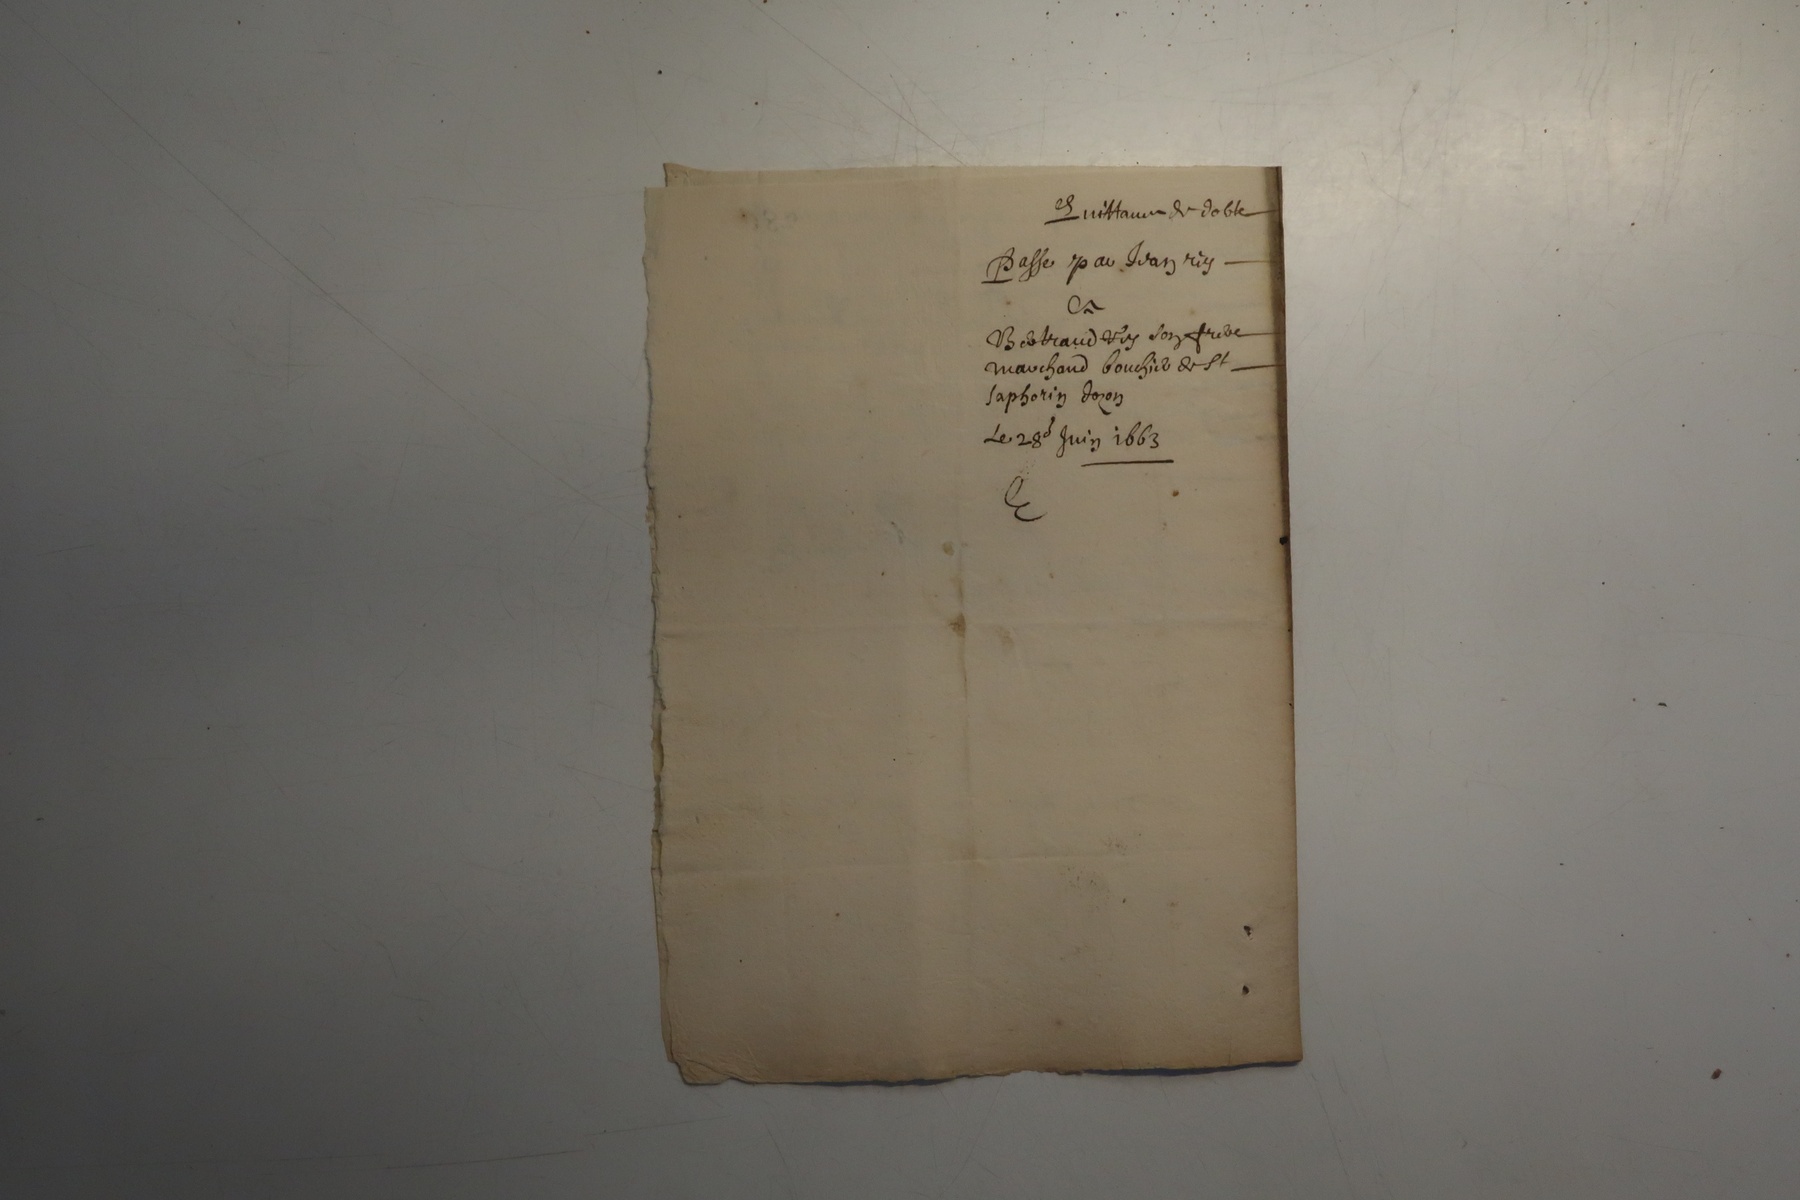 Quittance de debte
Passe par Jean rey
A
Bertrand Rey son frere
marchand bouchier de St
saphorin dozon
Le 28e Juin 1663